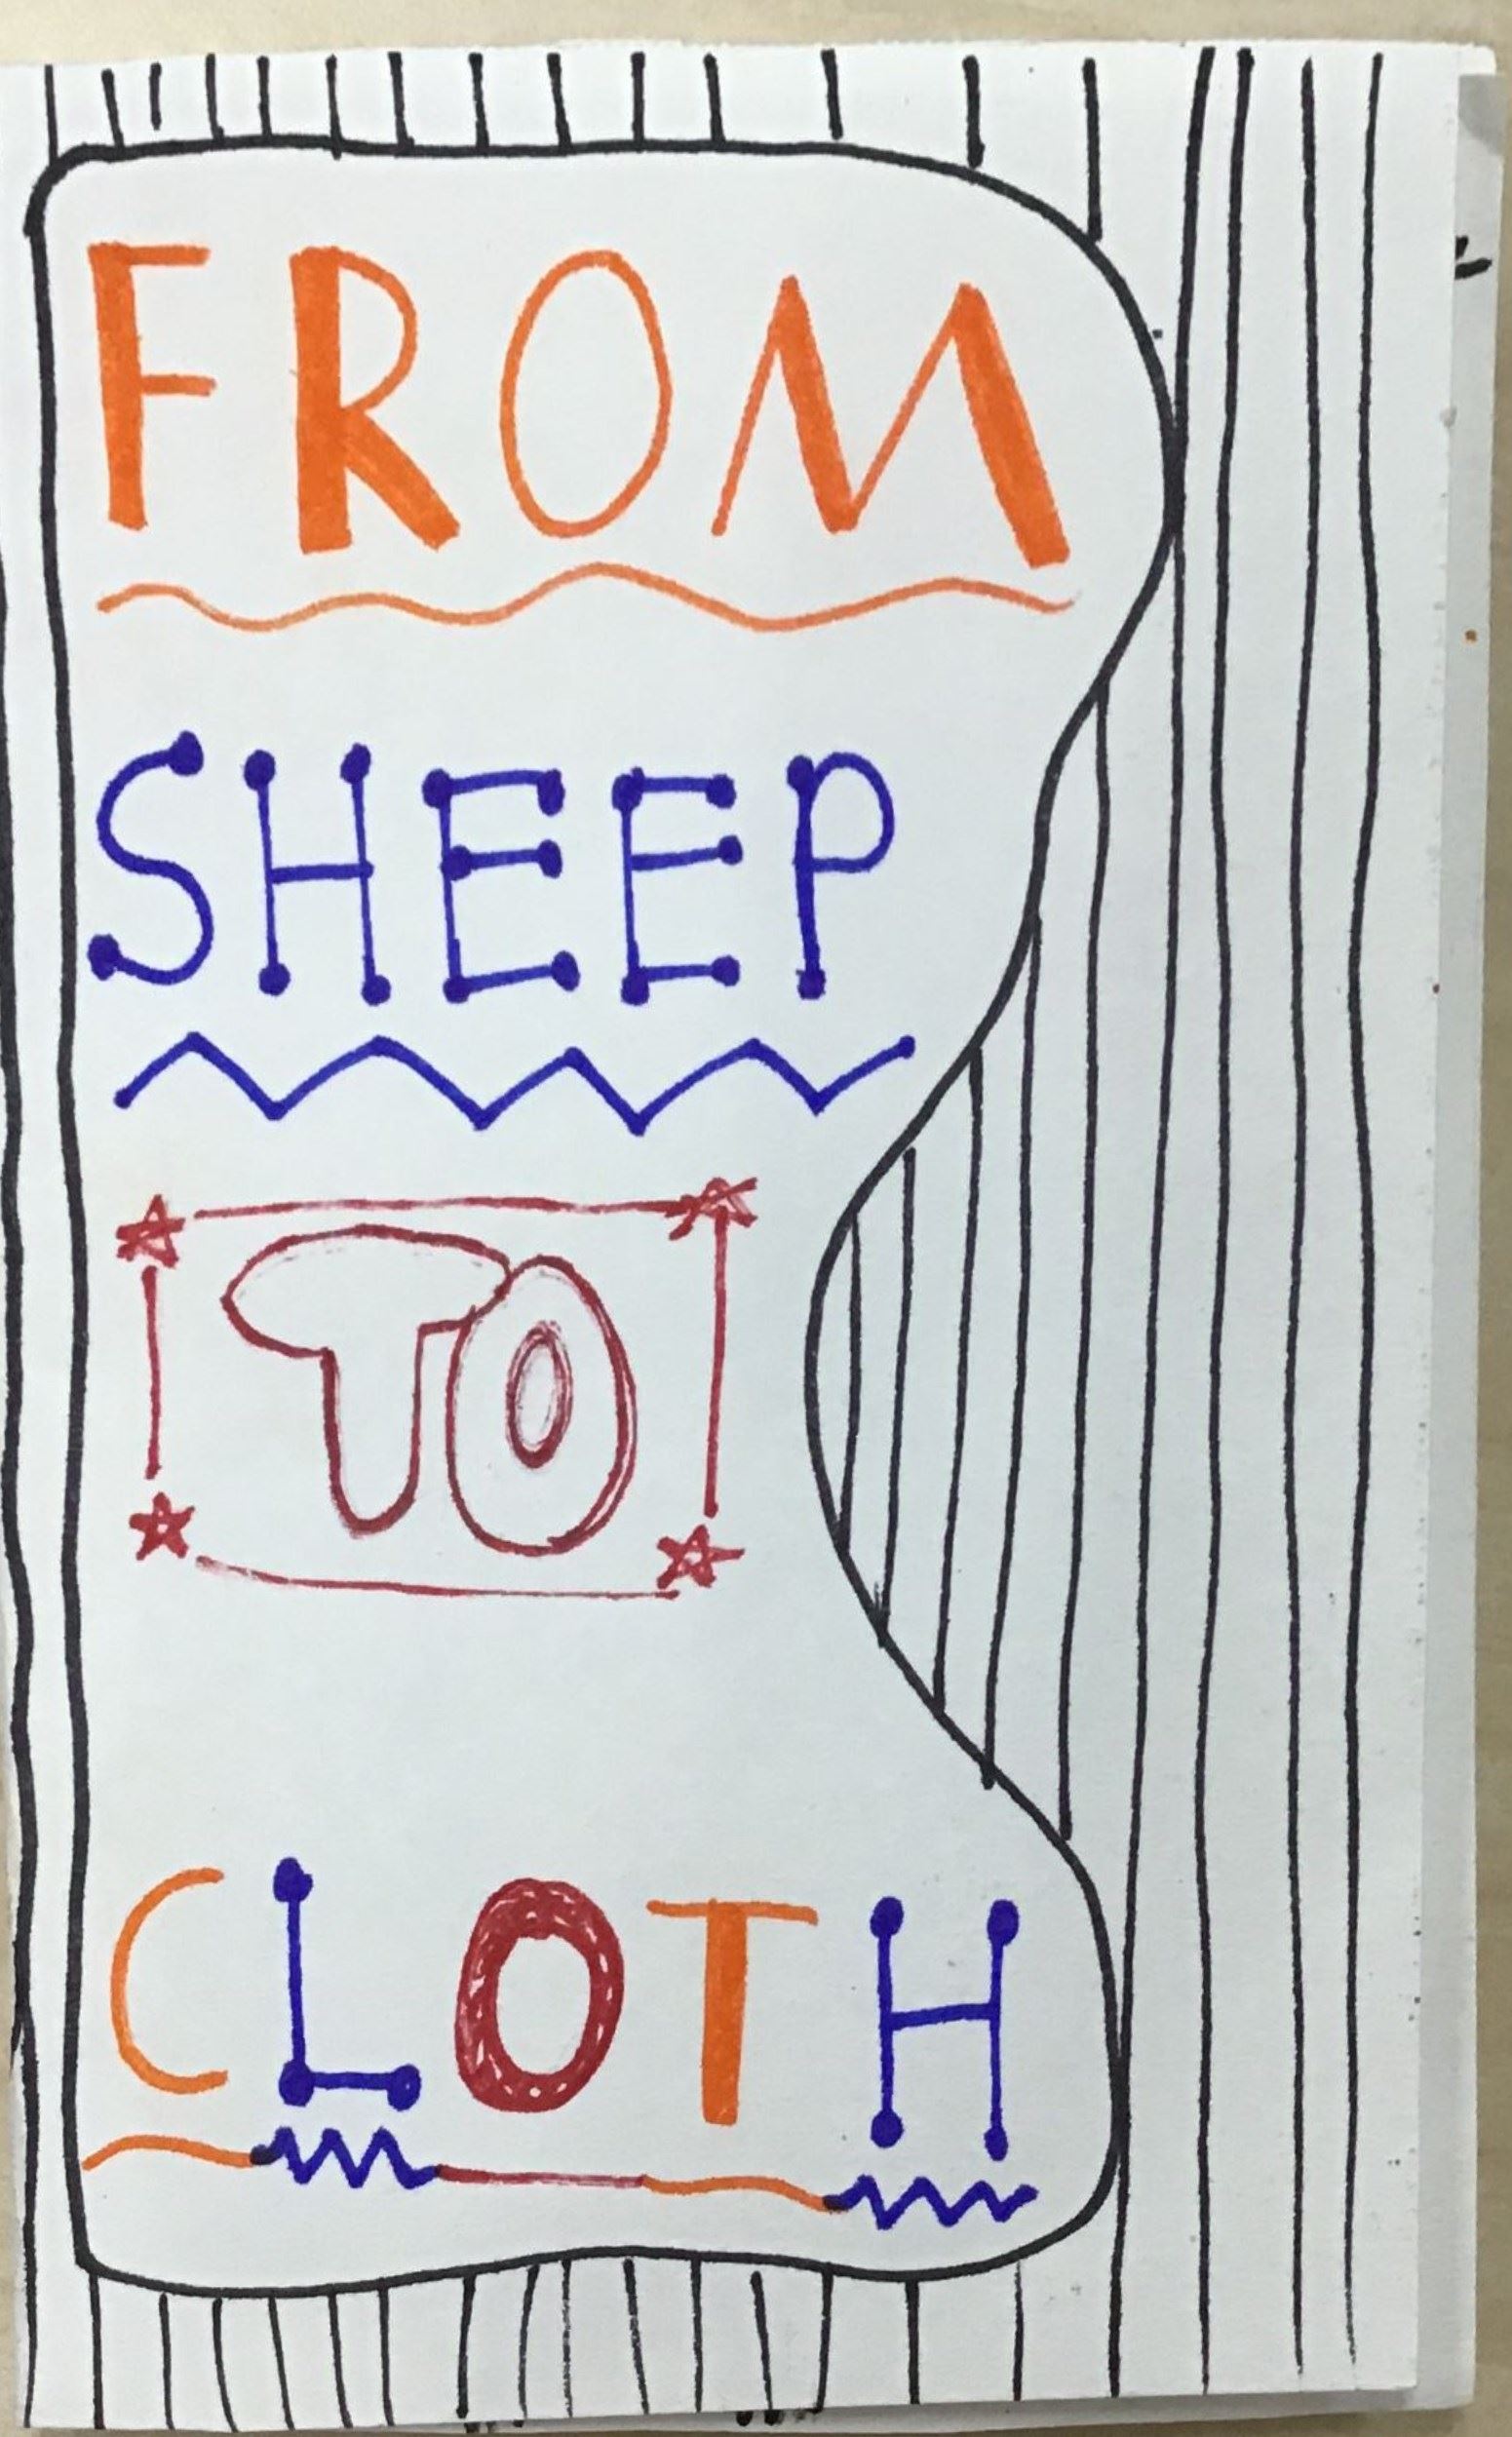 FROM
SHEEP
TO
CLOTH